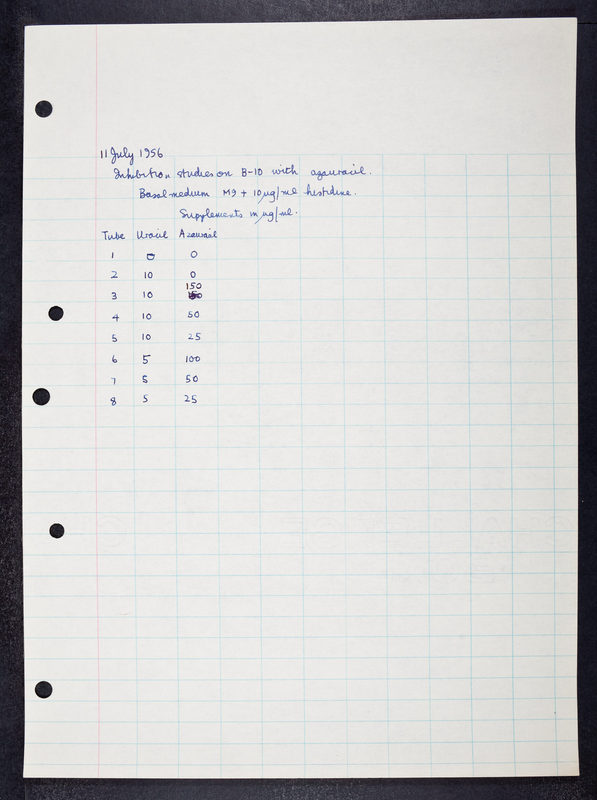 11 July 1956
Inhibition studies on B-10 with azauracil.
Basal medium M9 + 10 µg/ml histidine.
Supplements in µg/ml.
Tube Uracil Azauracil
1 0 0
2 10 0
150
3 10
4 10 50
5 10 25
6 5 100
7 5 50
8 5 25